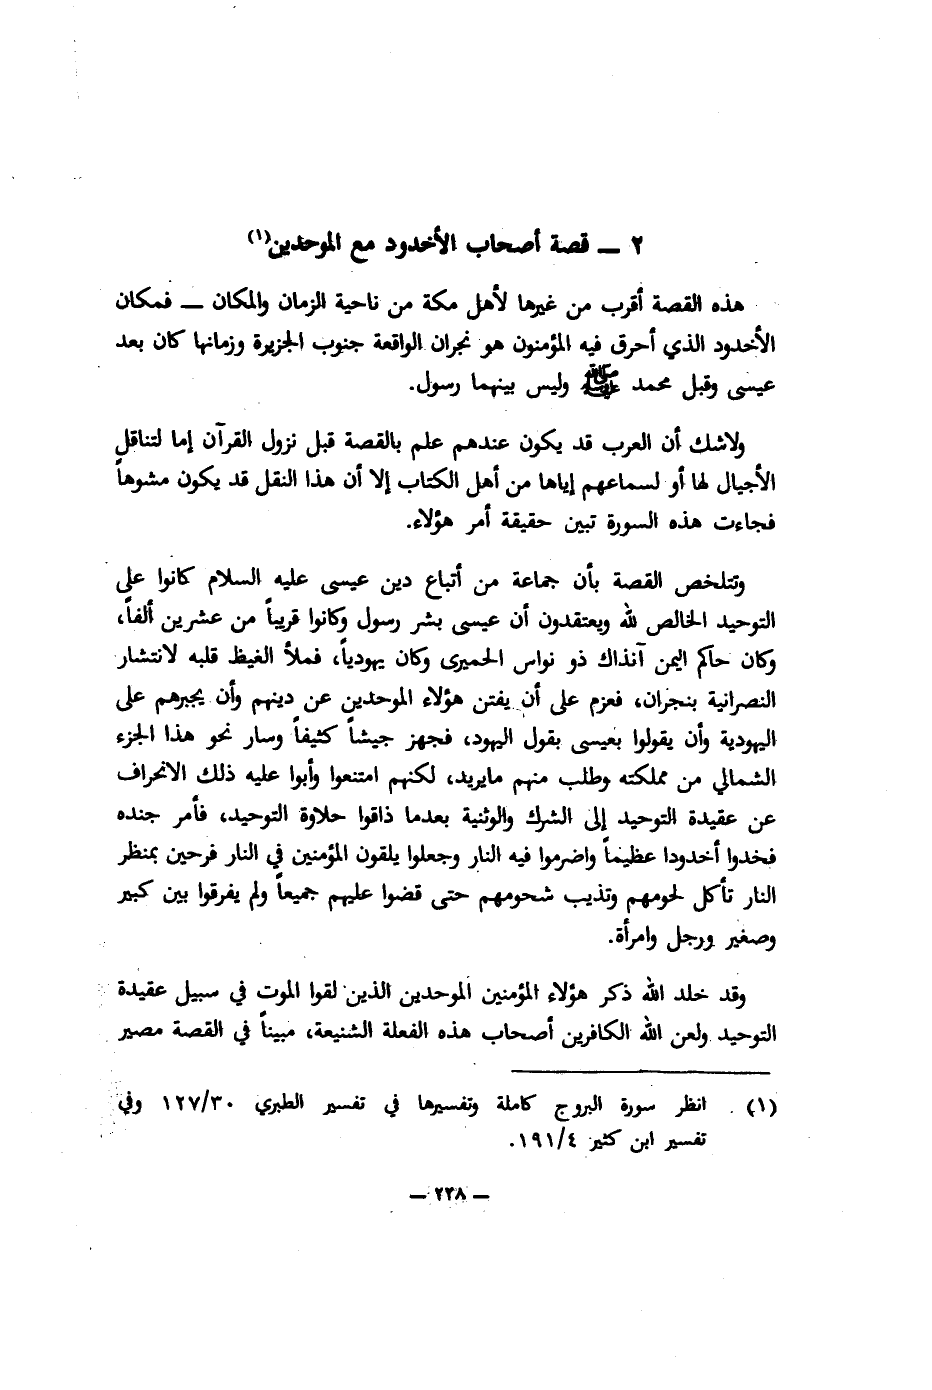 ٢ ــ قصة أصحاب الأخدود مع الموحدين(١)
هذه القصة أقرب من غيرها لأهل مكة من ناحية الزمان والمكان ــ فمكان
الأخدود الذي أحرق فيه المؤمنون هو نجران الواقعة جنوب الجزيرة وزمانها كان بعد
عيسى وقبل محمد ﷺ وليس بينهما رسول.
ولاشك أن العرب قد يكون عندهم علم بالقصة قبل نزول القرآن إما لتناقل
الأجيال لها أو لسماعهم إياها من أهل الكتاب إلا أن هذا النقل قد يكون مشوهاً
فجاءت هذه السورة تبين حقيقة أمر هؤلاء.
وتتلخص القصة بأن جماعة من أتباع دين عيسى عليه السلام كانوا على
التوحيد الخالص لله ويعتقدون أن عيسى بشر رسول وكانوا قريباً من عشرين ألفاً،
وكان حاكم اليمن آنذاك ذو نواس الحميرى وكان يهودياً، فملأ الغيظ قلبه لانتشار
النصرانية بنجران، فعزم على أن يفتن هؤلاء الموحدين عن دينهم وأن يجبرهم على
اليهودية وأن يقولوا بعيسى بقول اليهود، فجهز جيشاً كثيفاً وسار نحو هذا الجزء
الشمالي من مملكته وطلب منهم مايريد، لكنهم امتنعوا وأبوا عليه ذلك الانحراف
عن عقيدة التوحيد إلى الشرك والوثنية بعدما ذاقوا حلاوة التوحيد، فأمر جنده
فخدوا أخدودا عظيماً واضرموا فيه النار وجعلوا يلقون المؤمنين في النار فرحين بمنظر
النار تأكل لحومهم وتذيب شحومهم حتى قضوا عليهم جميعاً ولم يفرقوا بين كبير
وصغير ورجل وامرأة.
وقد خلد الله ذكر هؤلاء المؤمنين الموحدين الذين لقوا الموت في سبيل عقيدة
التوحيد ولعن الله الكافرين أصحاب هذه الفعلة الشنيعة، مبيناً في القصة مصير
(١) انظر سورة البروج كاملة وتفسيرها في تفسير الطبري ١٢٧/٣٠ وفي
تفسير ابن كثير ١٩١/٤.
— ٢٣٨ —